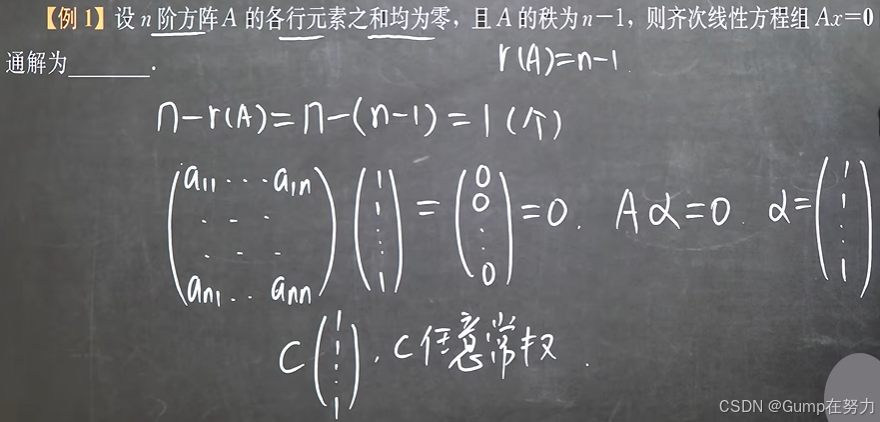 【例1】设 n 阶方阵 A 的各行元素之和均为零，且 A 的秩为 n−1，则齐次线性方程组 Ax=0
通解为________.
r(A)=n-1.
n-r(A)=n-(n-1)=1(个)
(a11 ··· a1n) (1) = (0) =0. Aα=0. α= (1)
(· - -) (1) (0) (1)
(· - · -) (⋮) (⋮) (⋮)
(an1 ·· ann) (1) (0) (1)
C (1 1 ⋮ 1), C任意常数.
CSDN @Gump在努力